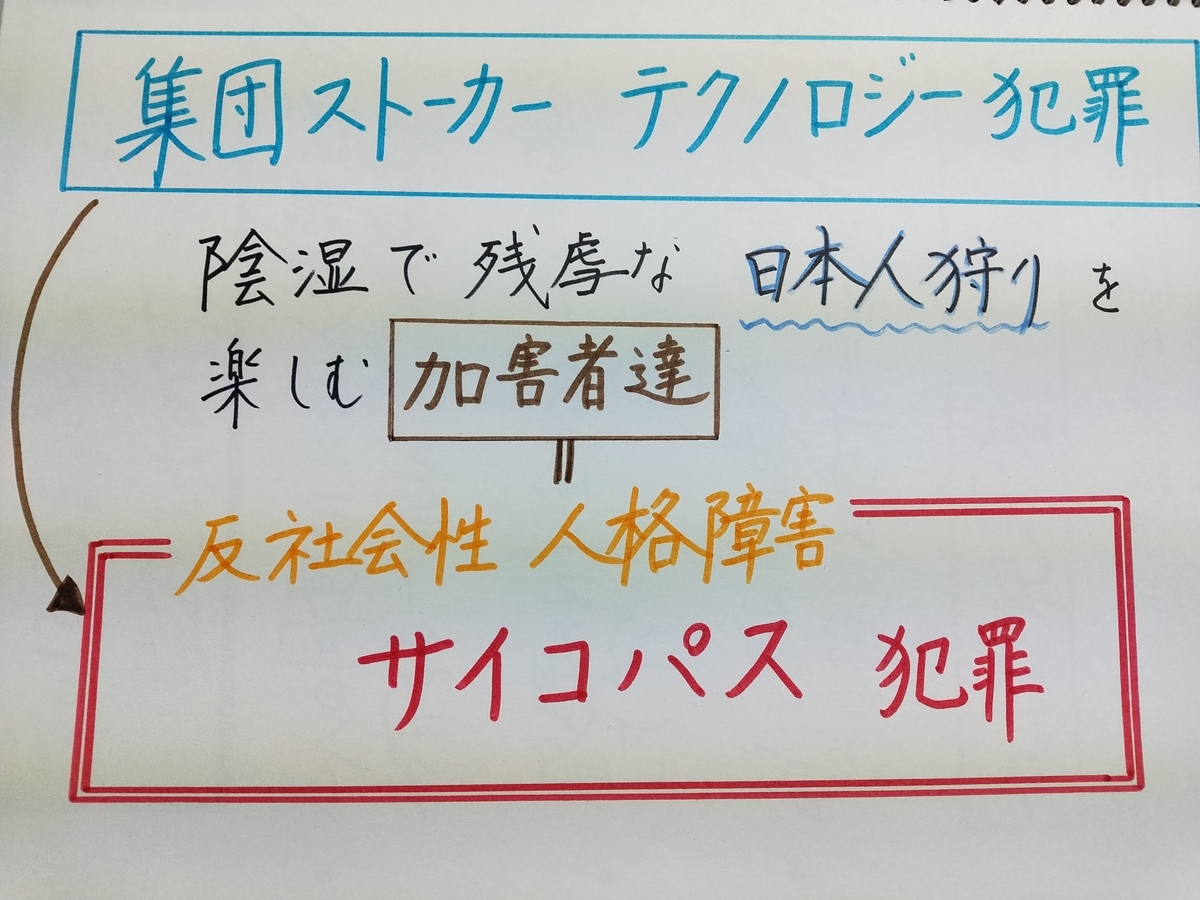 集団ストーカー テクノロジー犯罪
陰湿で残虐な 日本人狩り を
楽しむ 加害者達
反社会性 人格障害
サイコパス 犯罪